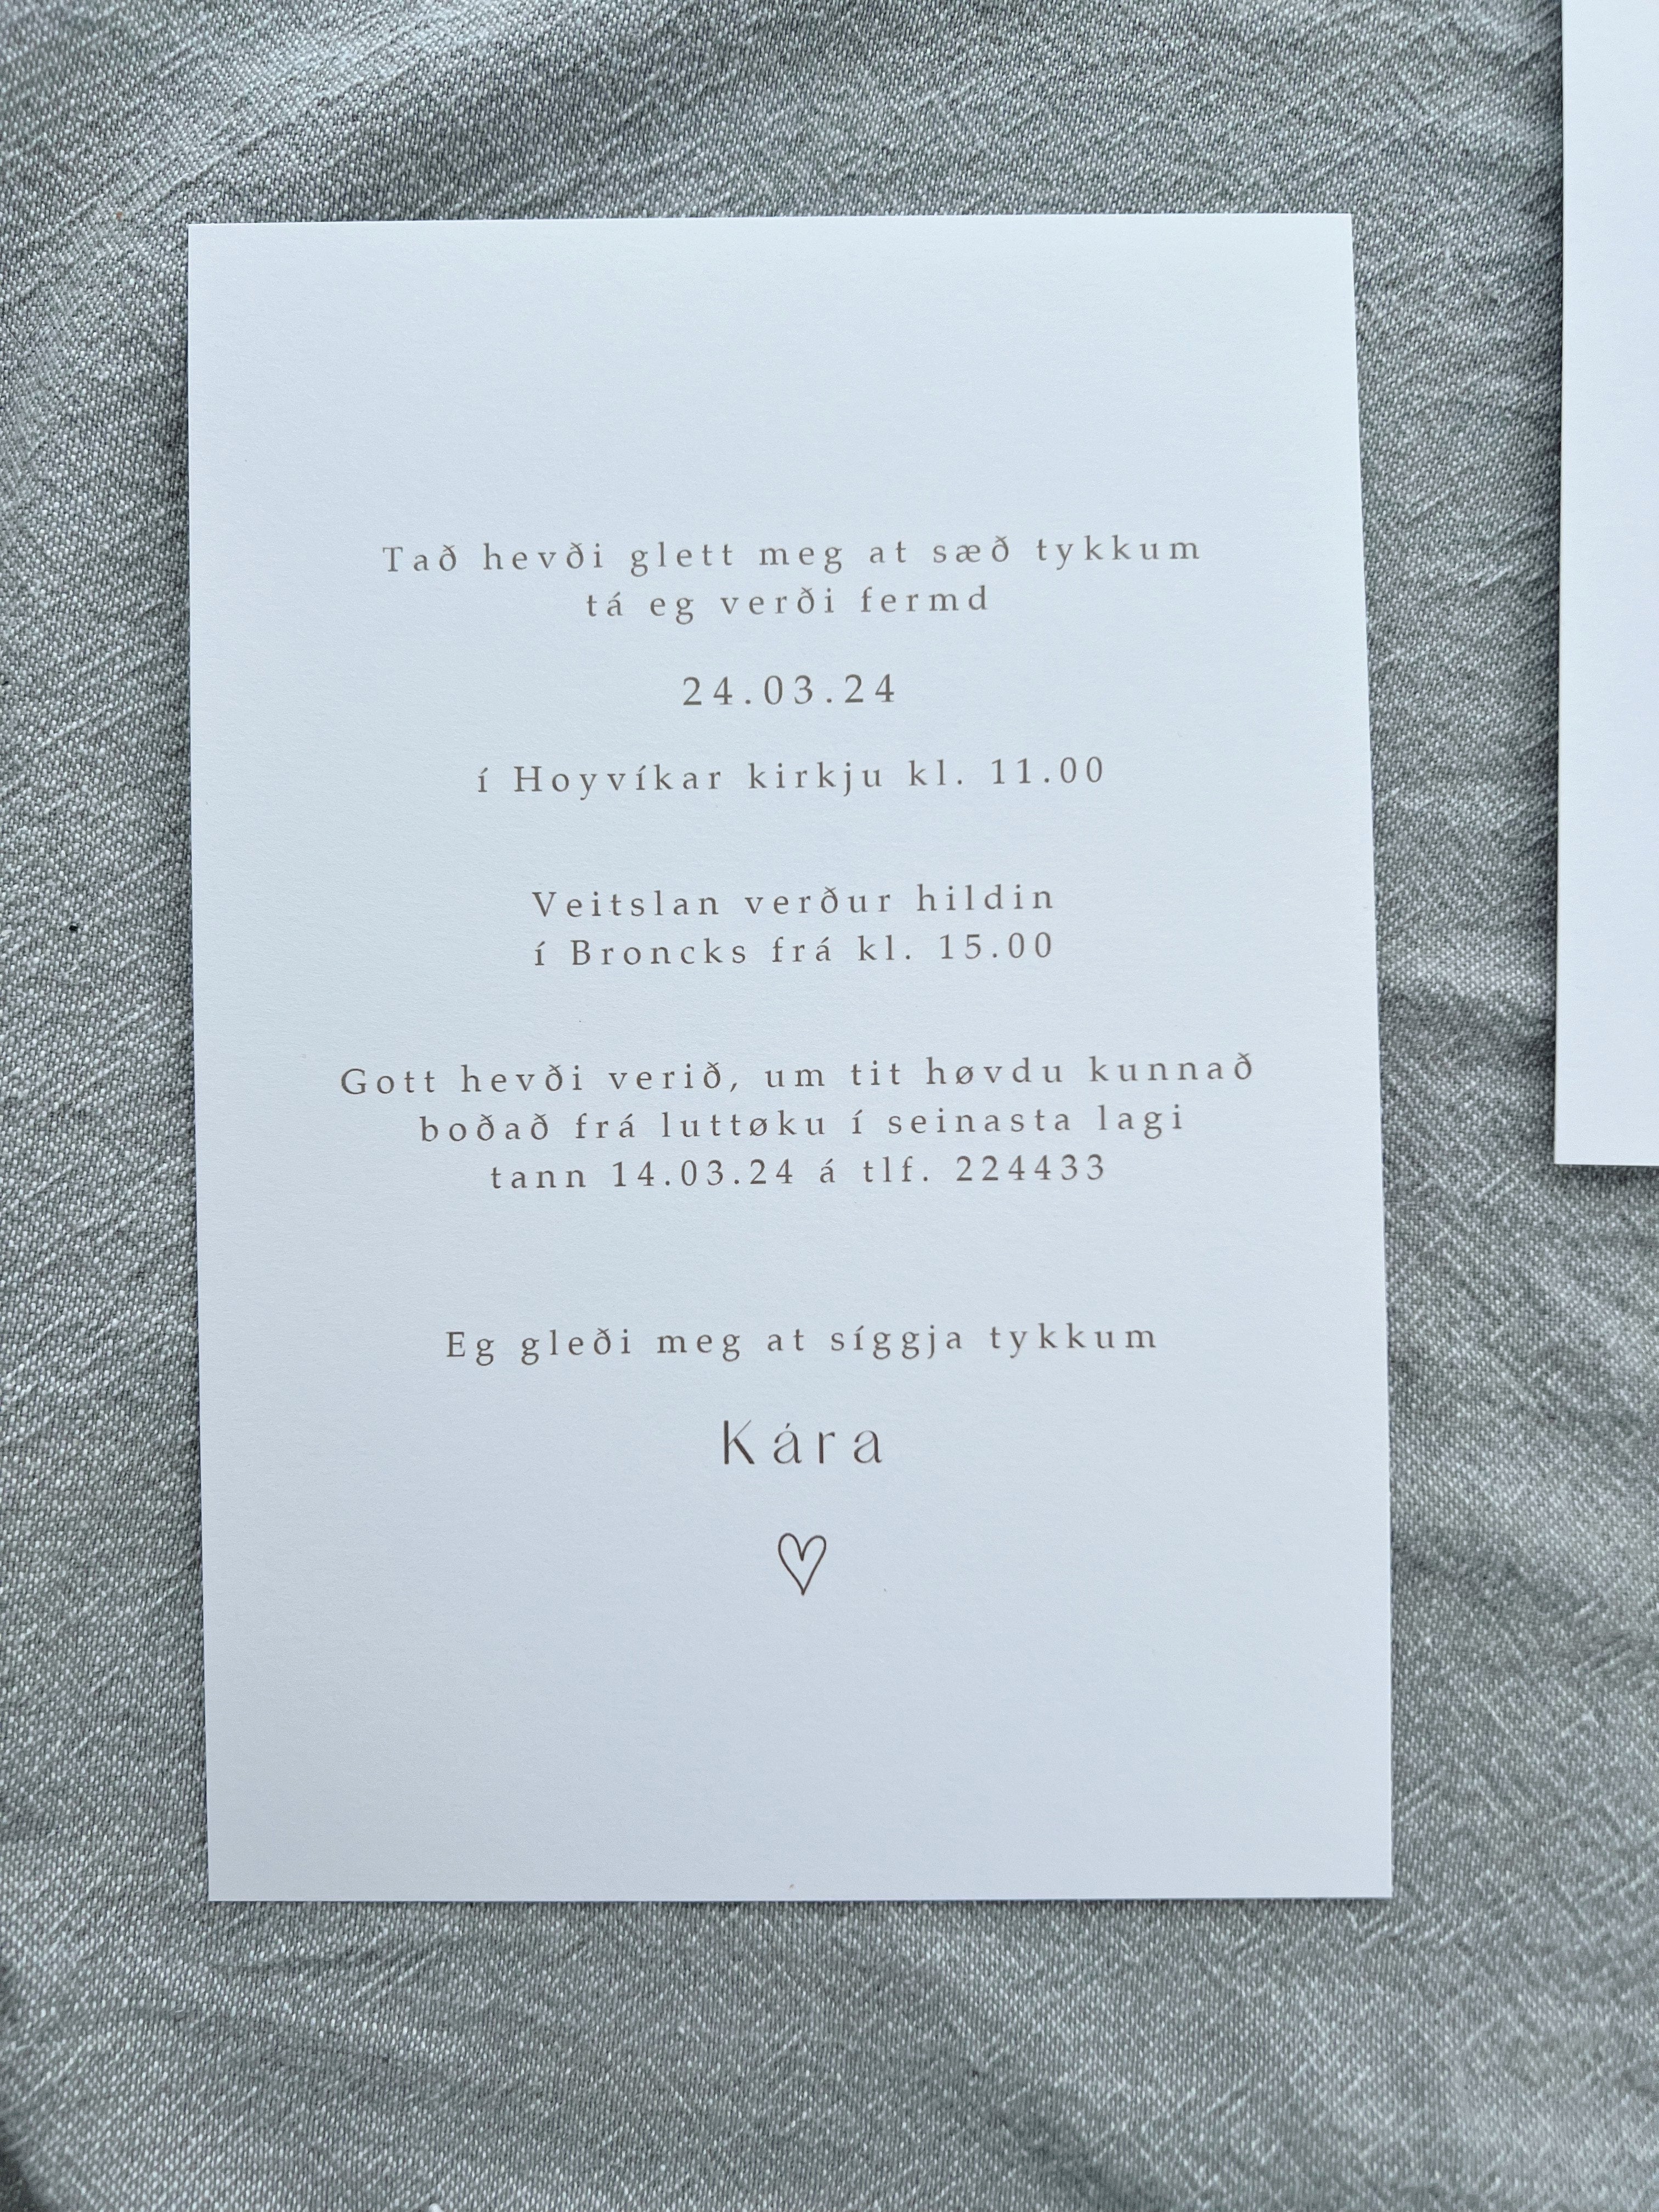 Tað hevði glett meg at sæð tykkum
tá eg verði fermd
24.03.24
í Hoyvíkar kirkju kl. 11.00
Veitslan verður hildin
í Broncks frá kl. 15.00
Gott hevði verið, um tit høvdu kunnað
boðað frá luttøku í seinasta lagi
tann 14.03.24 á tlf. 224433
Eg gleði meg at síggja tykkum
Kára